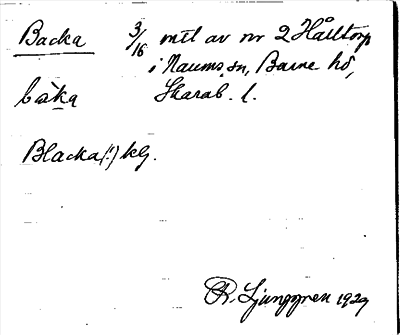 Backa 3/16 mtl av nr 2 Hälltorp
i Naums sn, Barne hd,
bàka Skarab. l.
Blacka(!) kg.
R. Ljunggren 1929